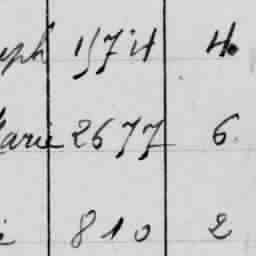 eph 1574 4
Marie 2677 6
810 2